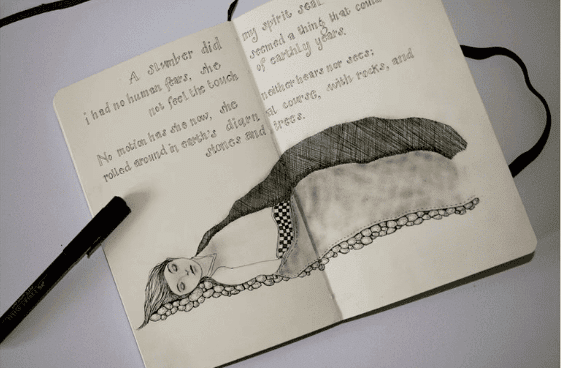 A slumber did my spirit seal
i had no human fears, she seemed a thing that could
not feel the touch of earthly years.
No motion has she now, she neither hears nor sees;
rolled around in earth's diurnal course, with rocks, and
stones and trees.